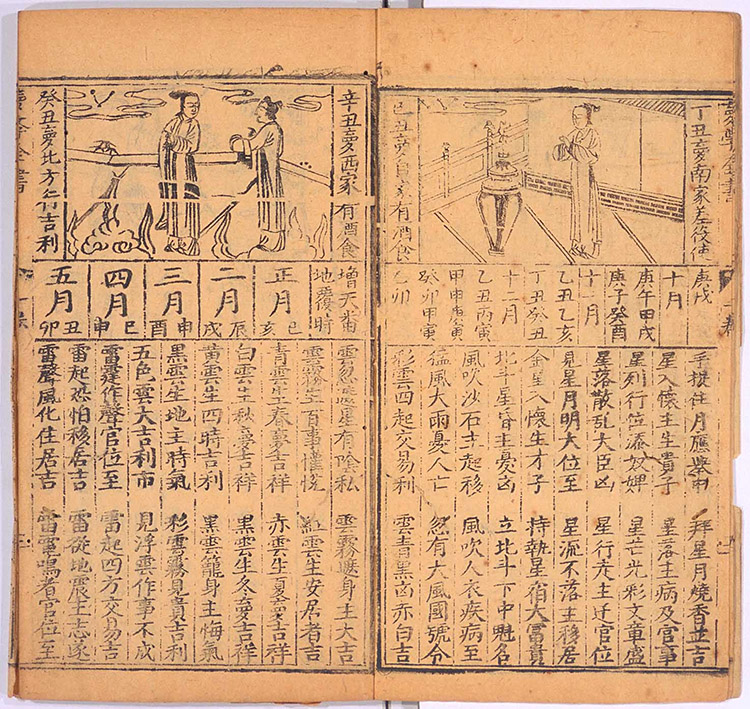 丁丑夢南家差役使
己丑夢自家有酒食
庚戌
十月
庚午甲戌
庚子癸酉
十一月
乙丑乙亥
丁丑癸丑
十二月
乙丑丙寅
甲申庚寅
癸卯甲寅
乙卯
手捉住月應舉中 拜星月燒香並吉
星入懷主生貴子 星落主病及官事
星列行位添奴婢 星芒光彩文章盛
星落散乱大臣凶 星行走主迁官位
見星月明大位至 星流不落主移居
金星入懷生才子 持執星宿大富貴
北斗星昏主憂凶 立北斗下中魁名
風吹沙石主起移 風吹人衣疾病至
猛風大雨憂人亡 忽有大風國號令
彩雲四起交易利 雲青黑凶赤白吉
辛丑夢西家有酒食
癸丑夢北方行吉利
增天番
地覆時
正月
巳 亥
二月
辰 戌
三月
申 酉
四月
巳 申
五月
丑 卯
雲忽遮星有陰私 雲霧遮身主大吉
雲霧生百事懽悅 紅雲生安居者吉
青雲生春夢吉祥 赤雲生夏夢吉祥
白雲生秋夢吉祥 黑雲生冬夢吉祥
黄雲生四時吉利 黑雲籠身主悔氣
黑雲生地主時氣 彩雲霧見貴吉利
五色雲大吉利市 見浮雲作事不成
雷霆作聲官位至 雷起四方交易吉
雷起恐怕移居吉 雷從地震主志遂
雷聲風化住居吉 雷電鳴者官位至